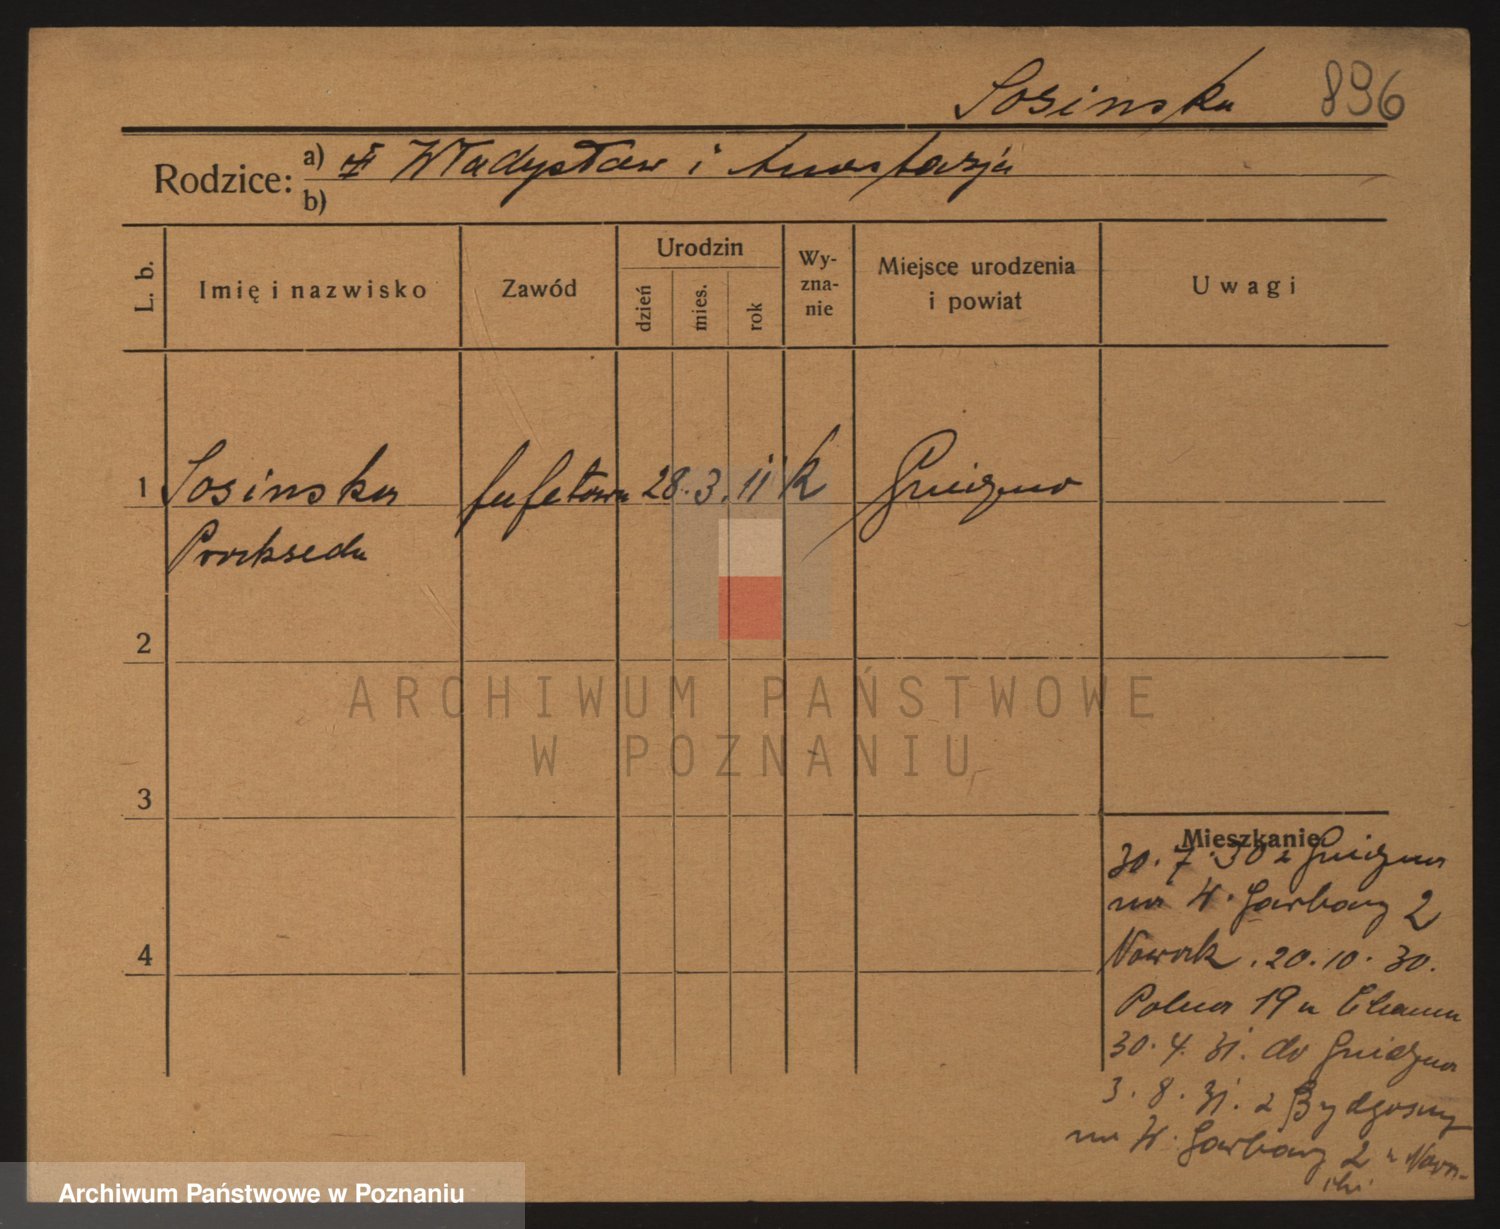 Sosinska 896
Rodzice: a) Władysław i Anastazja
b)
L. b.
Imię i nazwisko
Zawód
Urodzin
dzień
mies.
rok
Wy-
zna-
nie
Miejsce urodzenia
i powiat
Uwagi
1 Sosinska bufetowa 28. 3. 11 k Gniezno
Prakseda
2
3
4
Mieszkanie
30. 7. 30 z Gniezna
na W. Garbary 2
Nowak. 20. 10. 30.
Polna 19 u
30. 4. 31. do Gniezna
3. 8. 31. z Bydgoszczy
na W. Garbary 2 u
ARCHIWUM PAŃSTWOWE
W POZNANIU
Archiwum Państwowe w Poznaniu